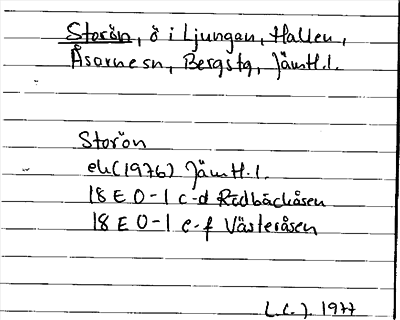 Storön, ö i Ljungan, Hallen,
Åsarne sn, Bergs tg, Jämtl. l.
Storön
ek (1976) Jämtl. l.
18 E 0-1 c-d Rödbäckåsen
18 E 0-1 e-f Västeråsen
1977